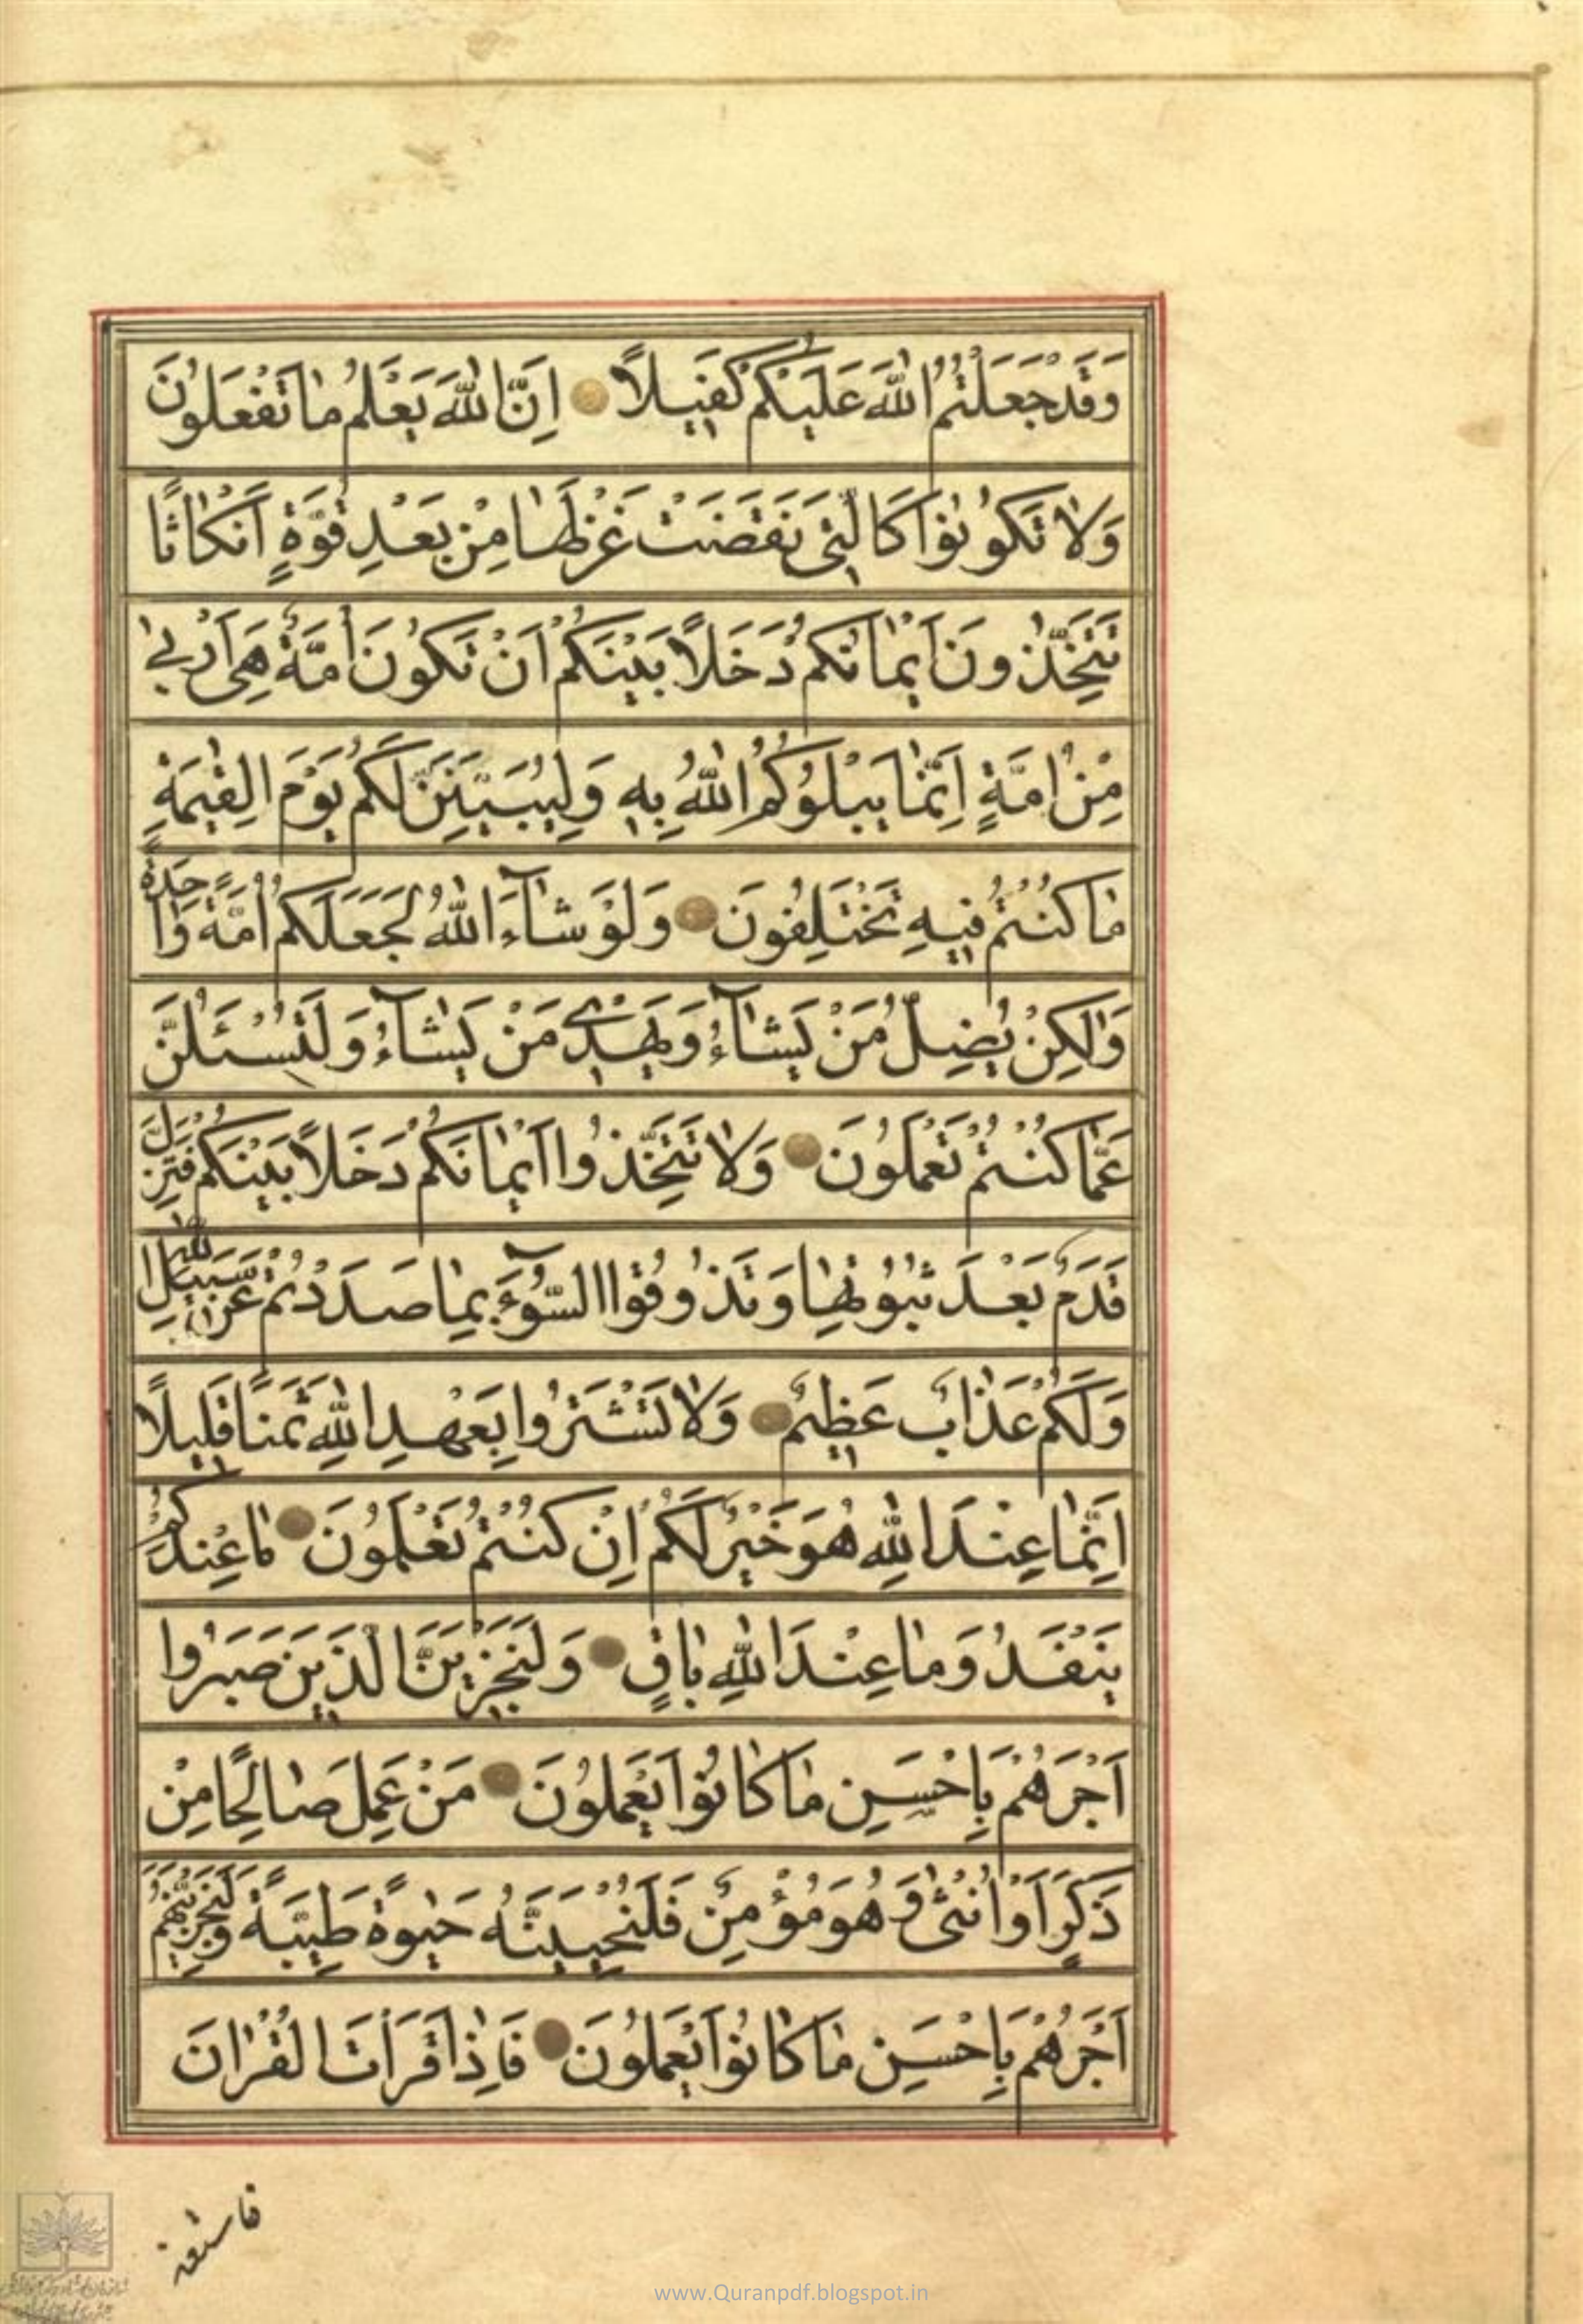 وَقَدْ جَعَلْتُمُ اللّٰهَ عَلَيْكُمْ كَفِيلًا اِنَّ اللّٰهَ يَعْلَمُ مٰا تَفْعَلُونَ
وَلاٰ تَكُونُوا كَالَّتِى نَقَضَتْ غَزْلَهٰا مِنْ بَعْدِ قُوَّةٍ اَنْكٰاثًا
تَتَّخِذُونَ اَيْمٰانَكُمْ دَخَلًا بَيْنَكُمْ اَنْ تَكُونَ اُمَّةٌ هِىَ اَرْبٰى
مِنْ اُمَّةٍ اِنَّمٰا يَبْلُوكُمُ اللّٰهُ بِهِ وَلَيُبَيِّنَنَّ لَكُمْ يَوْمَ الْقِيٰمَةِ
مٰا كُنْتُمْ فِيهِ تَخْتَلِفُونَ وَلَوْ شٰآءَ اللّٰهُ لَجَعَلَكُمْ اُمَّةً وٰاحِدَةً
وَلٰكِنْ يُضِلُّ مَنْ يَشٰآءُ وَيَهْدِى مَنْ يَشٰآءُ وَلَتُسْـَٔلُنَّ
عَمّٰا كُنْتُمْ تَعْمَلُونَ وَلاٰ تَتَّخِذُوا اَيْمٰانَكُمْ دَخَلًا بَيْنَكُمْ فَتَزِلَّ
قَدَمٌ بَعْدَ ثُبُوتِهٰا وَتَذُوقُوا السُّوٓءَ بِمٰا صَدَدْتُمْ عَنْ سَبِيلِ اللّٰهِ
وَلَكُمْ عَذٰابٌ عَظِيمٌ وَلاٰ تَشْتَرُوا بِعَهْدِ اللّٰهِ ثَمَنًا قَلِيلًا
اِنَّمٰا عِنْدَ اللّٰهِ هُوَ خَيْرٌ لَكُمْ اِنْ كُنْتُمْ تَعْلَمُونَ مٰا عِنْدَكُمْ
يَنْفَدُ وَمٰا عِنْدَ اللّٰهِ بٰاقٍ وَلَنَجْزِيَنَّ الَّذِينَ صَبَرُوا
اَجْرَهُمْ بِاَحْسَنِ مٰا كٰانُوا يَعْمَلُونَ مَنْ عَمِلَ صٰالِحًا مِنْ
ذَكَرٍ اَوْ اُنْثٰى وَهُوَ مُؤْمِنٌ فَلَنُحْيِيَنَّهُ حَيٰوةً طَيِّبَةً وَلَنَجْزِيَنَّهُمْ
اَجْرَهُمْ بِاَحْسَنِ مٰا كٰانُوا يَعْمَلُونَ فَاِذٰا قَرَأْتَ الْقُرْاٰنَ
فاستعذ
www.Quranpdf.blogspot.in